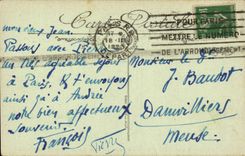 Carte Postale
POUR PARIS
METTRE LE NUMÉRO
DE L'ARRONDISSEMENT
Mon cher Jean
Passons avec Pierre
un très agréable séjour
à Paris, & t'envoyons
ainsi qu'à André
notre bien affectueux
Souvenir.
François
Pierre
Monsieur le Dr
J. Baudot
Damvillers
Meuse.